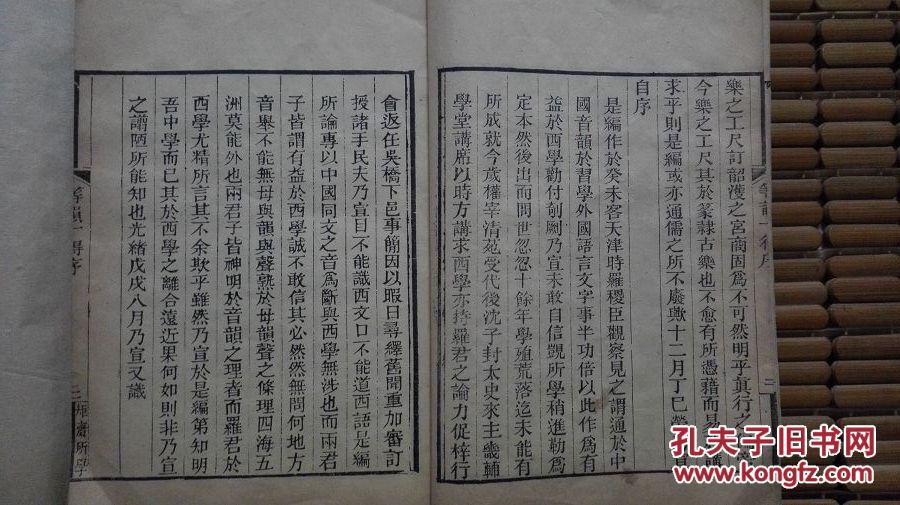 樂之工尺訂韶濩之宮商固爲不可然明乎眞行之
今樂之工尺其於篆隸古樂也不愈有所憑藉而易
求乎則是編或亦通儒之所不廢歟十二月丁巳勞乃宣
自序
是編作於癸未客天津時羅稷臣觀察見之謂通於中
國音韻於習學外國語言文字事半功倍以此作爲有
益於西學勸付剞劂乃宣未敢自信覬所學稍進勒爲
定本然後出而問世忽忽十餘年學殖荒落迄未能有
所成就今歲權宰清苑受代後沈子封太史來主畿輔
學堂講席以時方講求西學亦持羅君之論力促梓行
會返任吳橋下邑事簡因以暇日尋繹舊聞重加審訂
授諸手民夫乃宣目不能識西文口不能道西語是編
所論專以中國同文之音爲斷與西學無涉也而兩君
子皆謂有益於西學誠不敢信其必然然無問何地方
音舉不能無母與韻與聲熟於母韻聲之條理四海五
洲莫能外也兩君子皆神明於音韻之理者而羅君於
西學尤精所言其不余欺乎雖然乃宣於是編第知明
吾中學而已其於西學之離合遠近果何如則非乃宣
之譾陋所能知也光緒戊戌八月乃宣又識
等韻一得序
二
孔夫子旧书网
www.kongfz.com